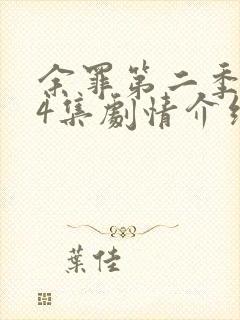 余罪第二季
4集劇情介紹
葉佳